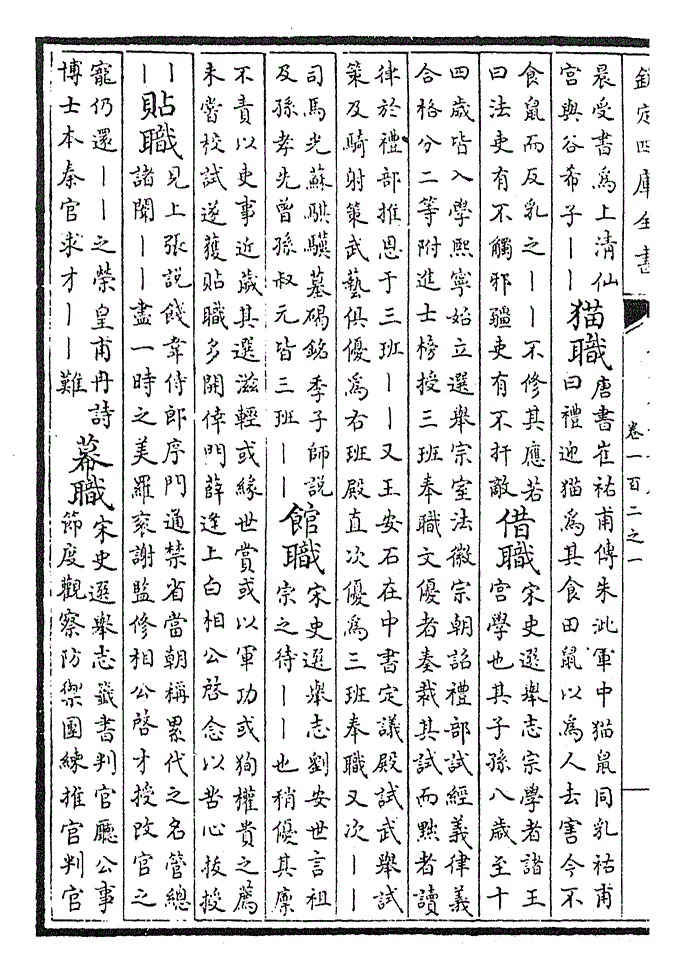 欽定四庫全書
卷一百二之一
晨受書為上清仙
宮與谷希子｜｜
猫職
唐書崔祐甫傳朱泚軍中猫鼠同乳祐甫
曰禮迎猫為其食田鼠以為人去害今不
食鼠而反乳之｜｜不修其應若
曰法吏有不觸邪疆吏有不扞敵
借職
宋史選舉志宗學者諸王
宮學也其子孫八歲至十
四歲皆入學熙寧始立選舉宗室法徽宗朝詔禮部試經義律義
合格分二等附進士榜授三班奉職文優者奏裁其試而黜者讀
律於禮部推恩于三班｜｜又王安石在中書定議殿試武舉試
策及騎射策武藝俱優為右班殿直次優為三班奉職又次｜｜
司馬光蘇騏驥墓碣銘季子師說
及孫孝先曾孫叔元皆三班｜｜
館職
宋史選舉志劉安世言祖
宗之待｜｜也稍優其廩
不責以吏事近歲其選滋輕或緣世賞或以軍功或狥權貴之薦
未嘗校試遂獲貼職多開倖門薛逢上白相公啓念以苦心拔授
｜
｜
貼職
見上張說餞韋侍郎序門通禁省當朝稱累代之名管總
諸闈｜｜盡一時之美羅衮謝監修相公啓才授改官之
寵仍還｜｜之榮皇甫冉詩
博士本秦官求才｜｜難
幕職
宋史選舉志籤書判官廳公事
節度觀察防禦團練推官判官